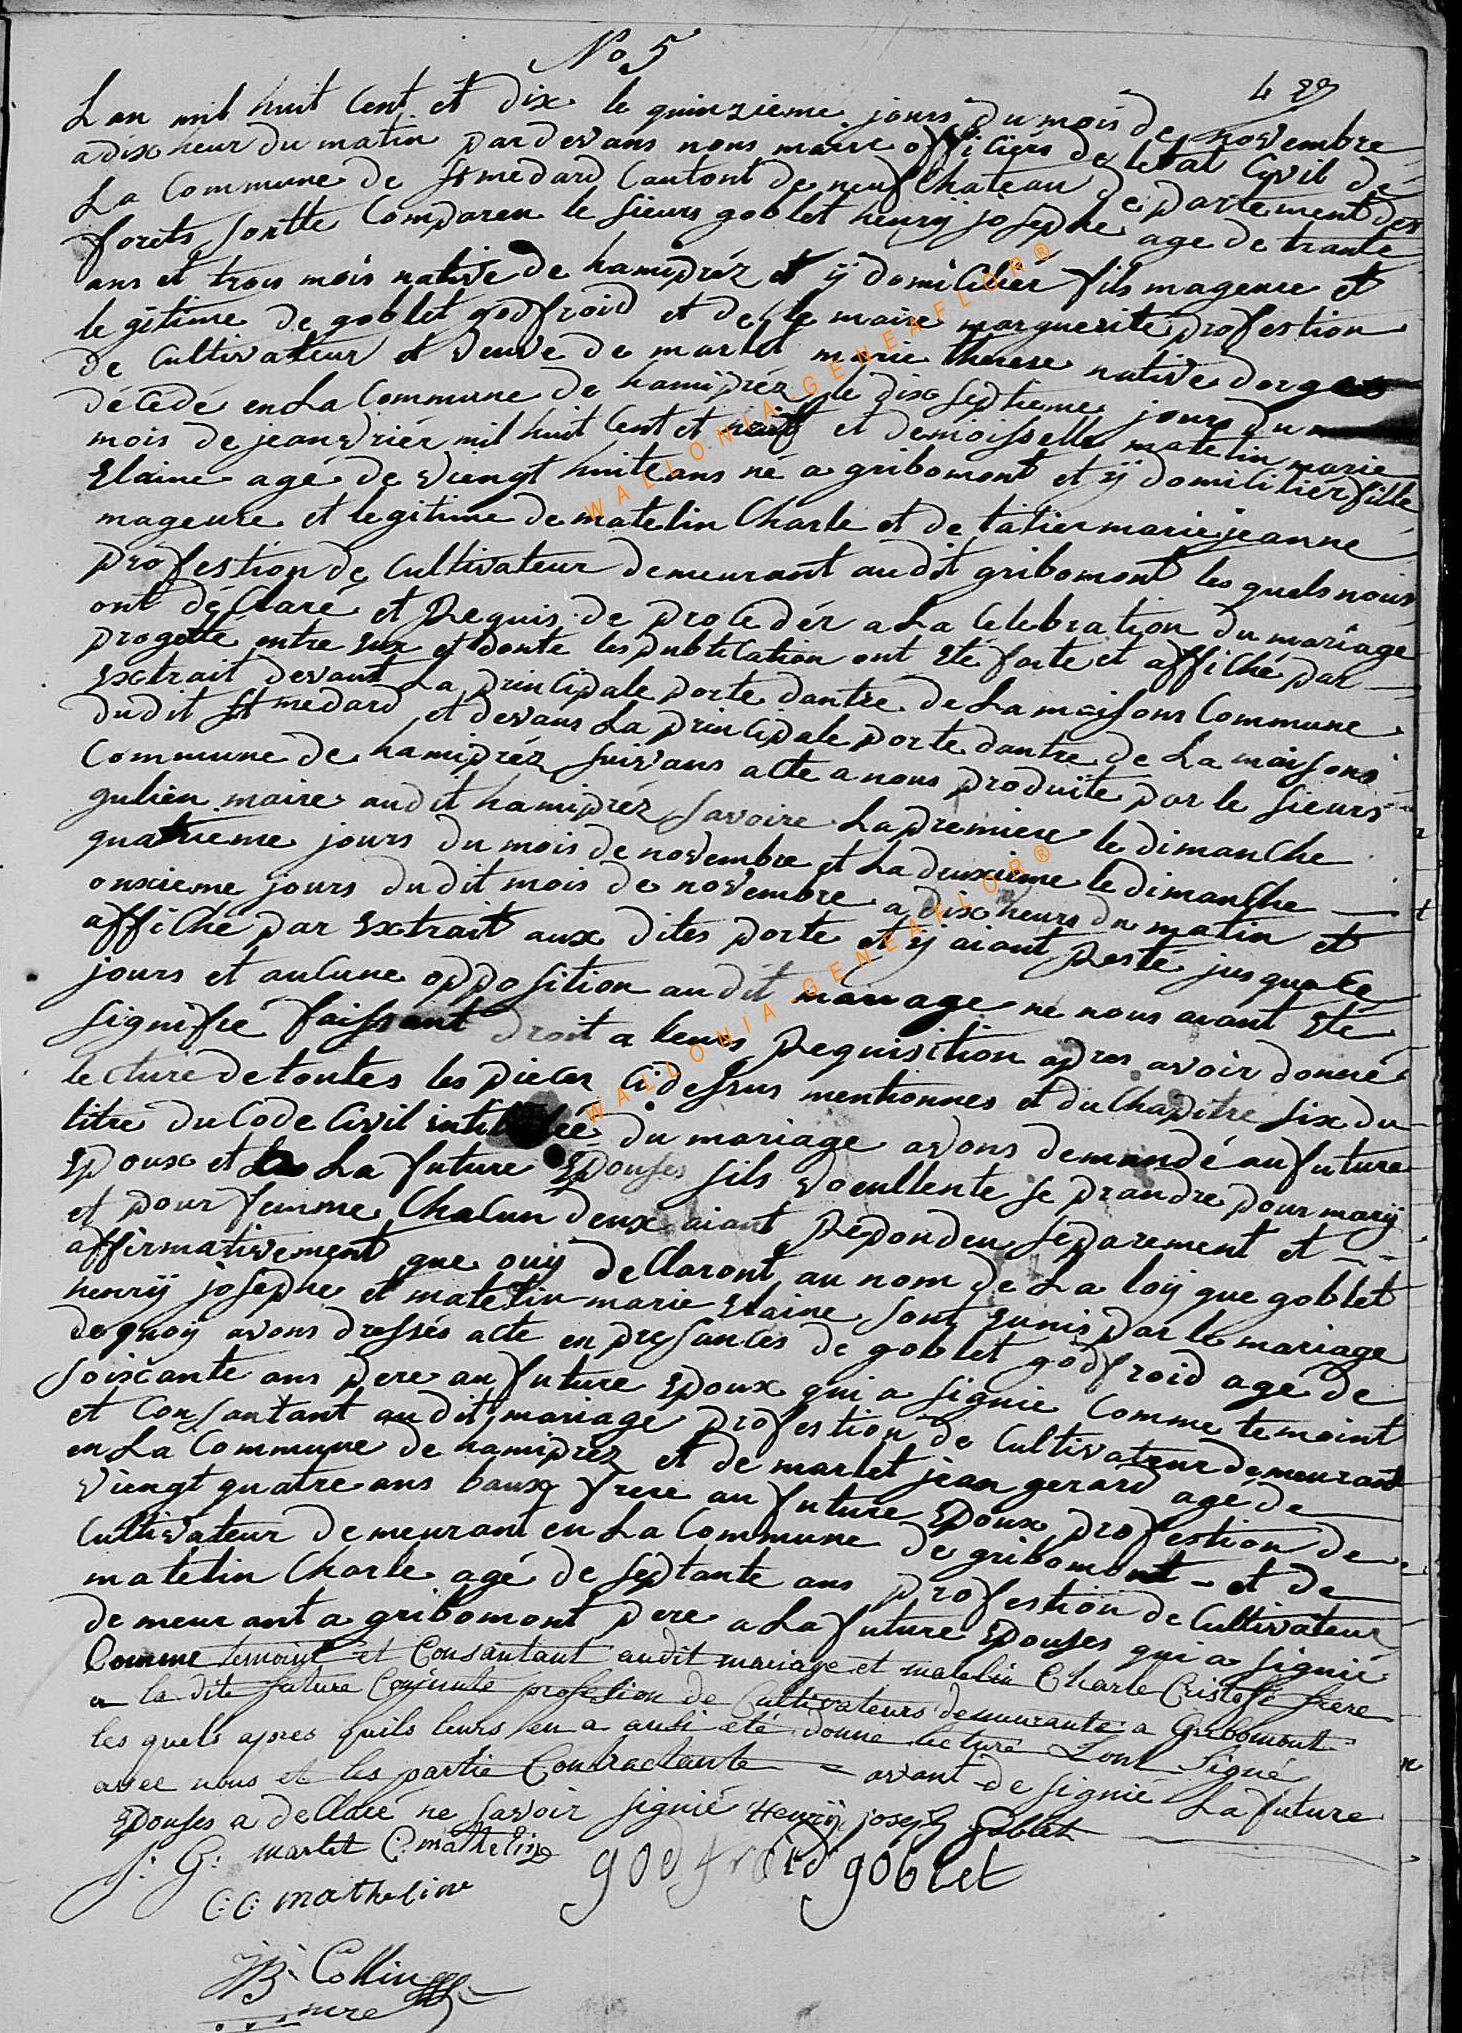 No 5
Lan mil huit Cent et dix le quinzieme jours du mois de novembre
a dix heur du matin pardevans nous maire officiérs de letat Cyvil de
La Commune de St medard Cantont de neufchateau departement des
forets Sontte Comparen le sieurs goblet henrÿ josephe age de trante
ans et trois mois native de hamipréz et ÿ domiCiliér fils mageure et
legitime de goblet godfroid et de le maire marguerite profestion
de Cultivateur et veuve de marlet marie therese native dorgeo
décédé en La Commune de hamipréz le dix septieme jours du
mois de jeanvriér mil huit Cent et et demoisselle matelin marie
Elaine agé de viengt huite ans né a gribomont et ÿ domiliciér fille
mageure et legitime de matelin Charle et de talier marie jeanne
profestion de Cultivateur demeurant audit gribomont les quels nous
ont déClaré et Requis de proCedér a La Celebration du mariage
progetté entre eux et donte les publiCation ont eté faite et affiché par
Extrait devant La prinCipale porte dantre de La maisons Commune
dudit St medard et devans La prinCipale porte dantre de La maisons
Commune de hamipréz suivans acte a nous produite par le sieurs
gulien maire audit hamipréz savoire La premiere le dimanche
quatrieme jours du mois de novembre et La deuxieme le dimanche
onzieme jours dudit mois de novembre a dix heurs du matin et
affiché par Extrait aux dites porte et ÿ aiant Resté jusqua Ce
jours et auCune opposition audit mariage ne nous aiant eté
signifié faissant droit a leurs Requisition apres avoir donné
lecture de toutes les pieces Ci dessus mentionnes et du Chapitre six du
titre du Code Civil du mariage avons demandé au future
Epoux et La future Epouses sils voeullente se prandre pour marÿ
et pour femme Chacun deux aiant Répondeu separement et
affirmativement que ouÿ deClaront au nom de La loÿ que goblet
henrÿ josephe et matelin marie Elaine sont eunis par le mariage
de quoÿ avons dressés acte en presances de goblet godfroid agé de
soixcante ans pere au future Epoux qui a signié Comme temoint
et Consantant audit mariage profestion de Cultivateur demeurant
en La Commune de hamipréz et de marlet jean gerard agé de
viengt quatre ans baux frere au future Epoux profestion de
Cultivateur demeurant en La Commune de gribomont et de
matelin Charle agé de septante ans profestion de Cultivateur
demeurant a gribomont pere a La future Epouses qui a signié
Comme temoint et Consantant audit mariage et matelin Charle frere
a la dite future Conjointe profesion de Cultivateurs demeurante a Gribomont
les quels apres quils leurs en a ausi eté donne lecture Lont Signé
avec nous et les partie Contractante avant de signié La future
Epouses a deClaré ne savoir signié Henrÿ joseph Goblet
J: G: marlet C: mathelin godfroid goblet
C: C: mathelin
JB Collin
mre
WALLONIA-GENEAFLOR®
WALLONIA-GENEAFLOR®